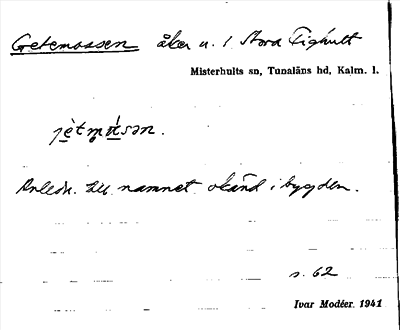 Getemossen åker u. 1 Stora Fighult
Misterhults sn, Tunaläns hd, Kalm. l.
Anledn. till namnet okänd i bygden.
s. 62
Ivar Modéer. 1941